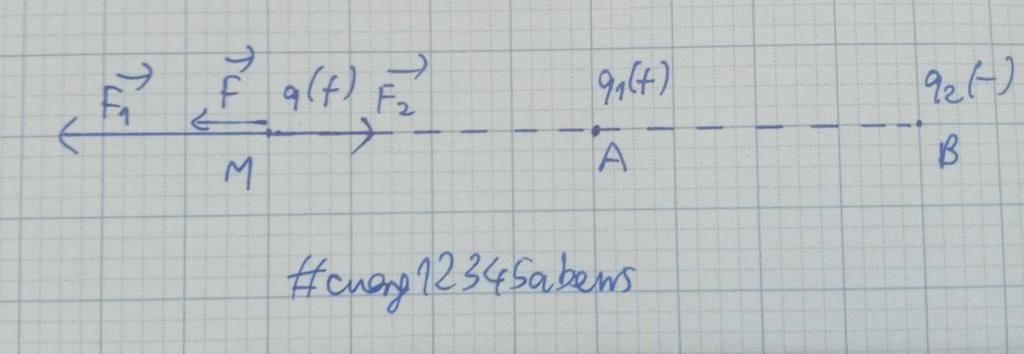 F₁ F q(+) F₂ q₁(+) q₂(-)
M A B
#cuong12345abems